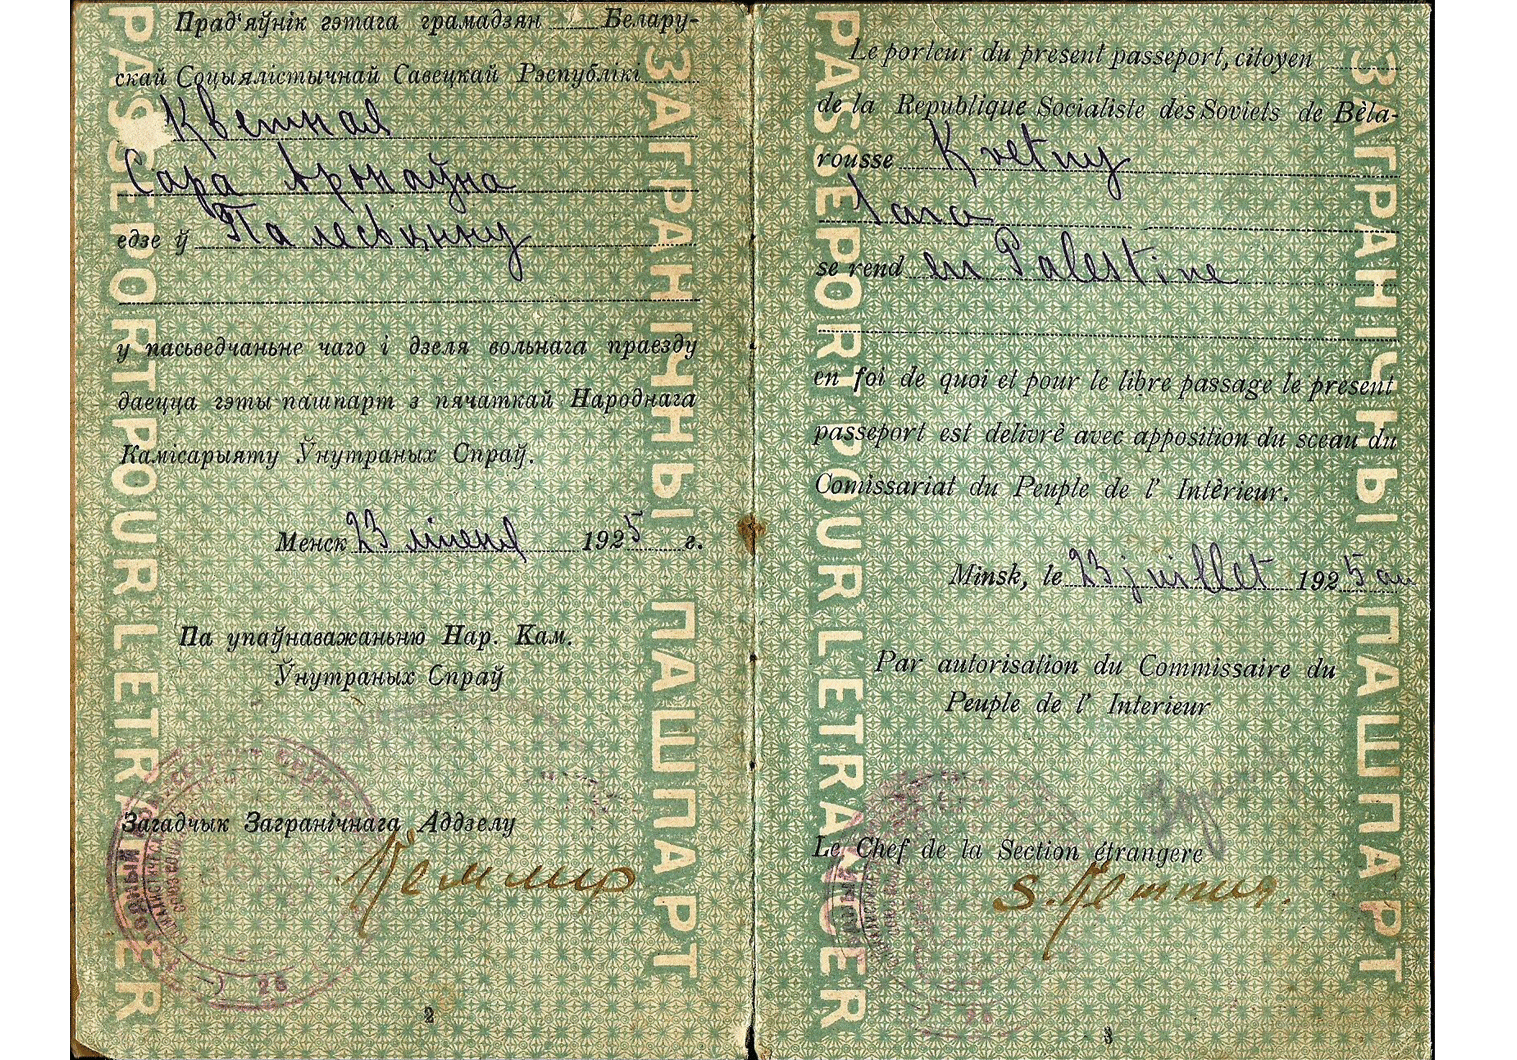 Прад'яўнік гэтага грамадзян Белару-
скай Соцыялістычнай Савецкай Рэспублікі
Кветная
Сара Арнаўна
едзе ў Палесьцыну
у пасьведчаньне чаго і дзеля вольнага праезду
даецца гэты пашпарт з пячаткай Народнага
Камісарыяту Ўнутраных Спраў.
Менск 23 ліпеня 1925 г.
Па упаўнаважаньню Нар. Кам.
Ўнутраных Спраў
Загадчык Загранічнага Аддзелу
2
PASSEPORT POUR L'ETRANGER
ЗАГРАНІЧНЫ ПАШПАРТ
Le porteur du présent passeport, citoyen
de la Republique Socialiste des Soviets de Bèla-
rousse Kvetny
Sara
se rend en Palestine
en foi de quoi et pour le libre passage le présent
passeport est délivré avec apposition du sceau du
Comissariat du Peuple de l' Intèrieur.
Minsk, le 23 juillet 1925 an
Par autorisation du Commissaire du
Peuple de l' Interieur
Le Chef de la Section étrangere
3
PASSEPORT POUR L'ETRANGER
ЗАГРАНІЧНЫ ПАШПАРТ